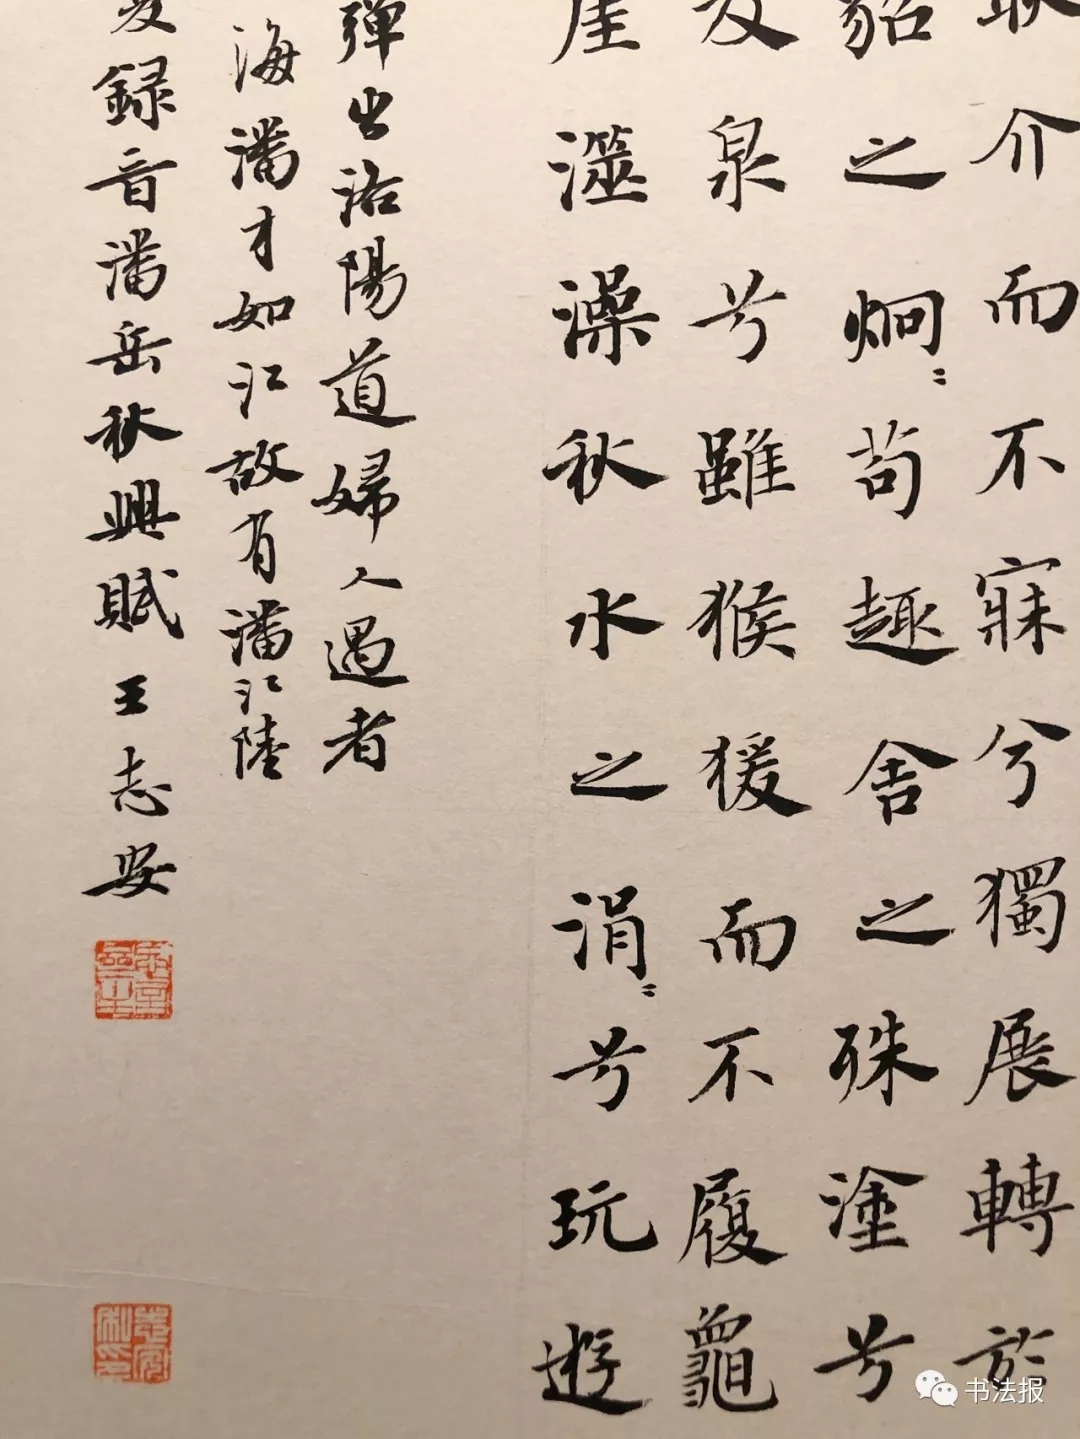 耿介而不寐兮獨展轉於
貂之炯〻苟趣舍之殊塗兮
及泉兮雖猴猨而不履龜
崖澡秋水之涓〻兮玩游
彈出洛陽道婦人遇者
海潘才如江故有潘江陸
爰録晉潘岳秋興賦王志安
书法报